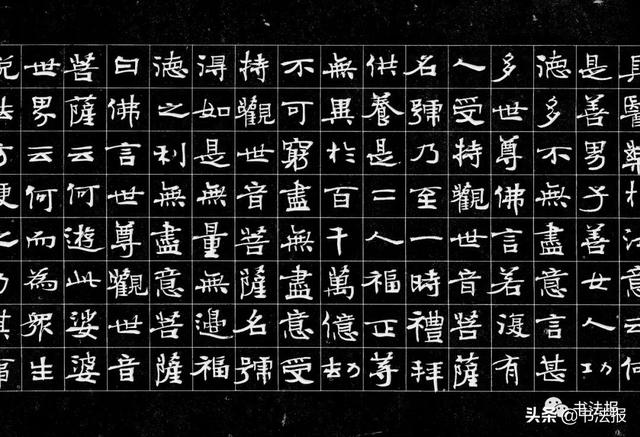 具醫藥於汝意云何
是善男子善女人功
德多不無盡意言甚
多世尊佛言若復有
人受持觀世音菩薩
名號乃至一時禮拜
供養是二人福正等
無異於百千萬億劫
不可窮盡無盡意受
持觀世音菩薩名號
得如是無量無邊福
德之利無盡意菩薩
曰佛言世尊觀世音
菩薩云何遊此娑婆
世界云何而為眾生
說法方便之力其事
书法报
头条 @书法报